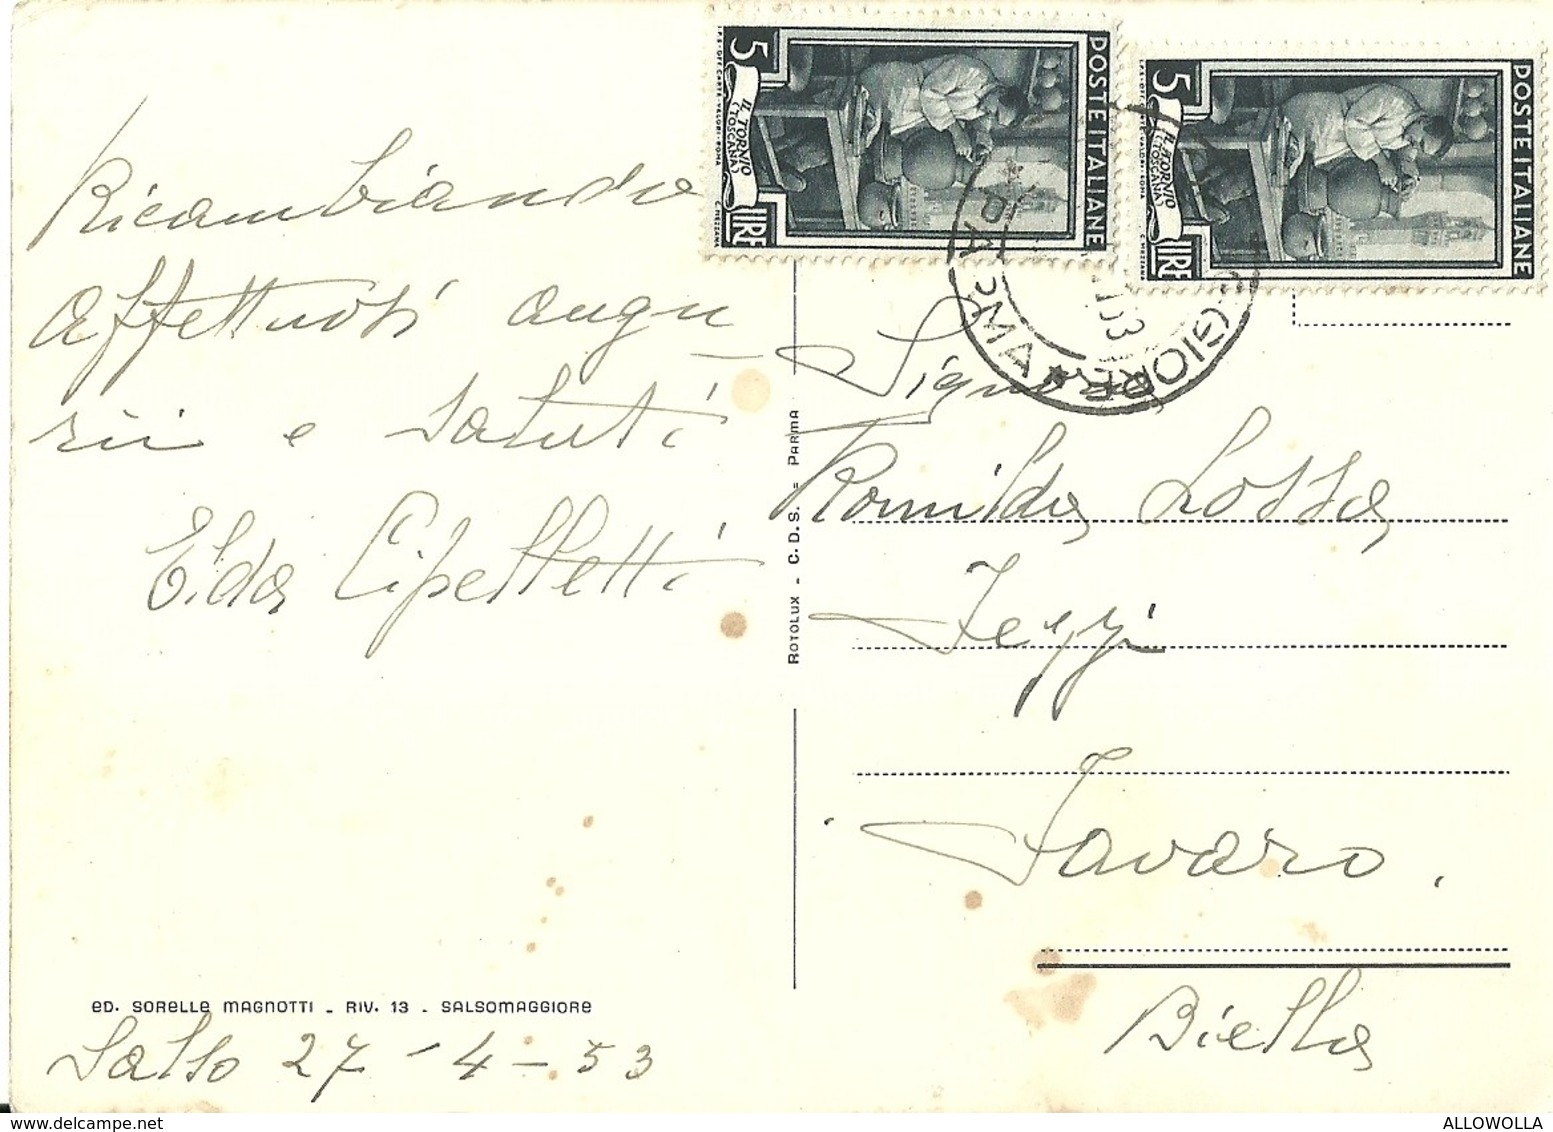 Ricambiando
affettuosi augu
rii e saluti
Elda Cipelletti
ED. SORELLE MAGNOTTI - RIV. 13 - SALSOMAGGIORE
Salso 27-4-53
ROTOLUX - C.D.S. = PARMA
5
IL TORNIO
(TOSCANA)
LIRE
POSTE ITALIANE
I.P.S.-OFF. CARTE-VALORI-ROMA
C. MEZZANA
5
IL TORNIO
(TOSCANA)
LIRE
POSTE ITALIANE
I.P.S.-OFF. CARTE-VALORI-ROMA
C. MEZZANA
GGIORE
PARMA
53
Romilda Lossa
Favaro.
Biella
ALLOWOLLA